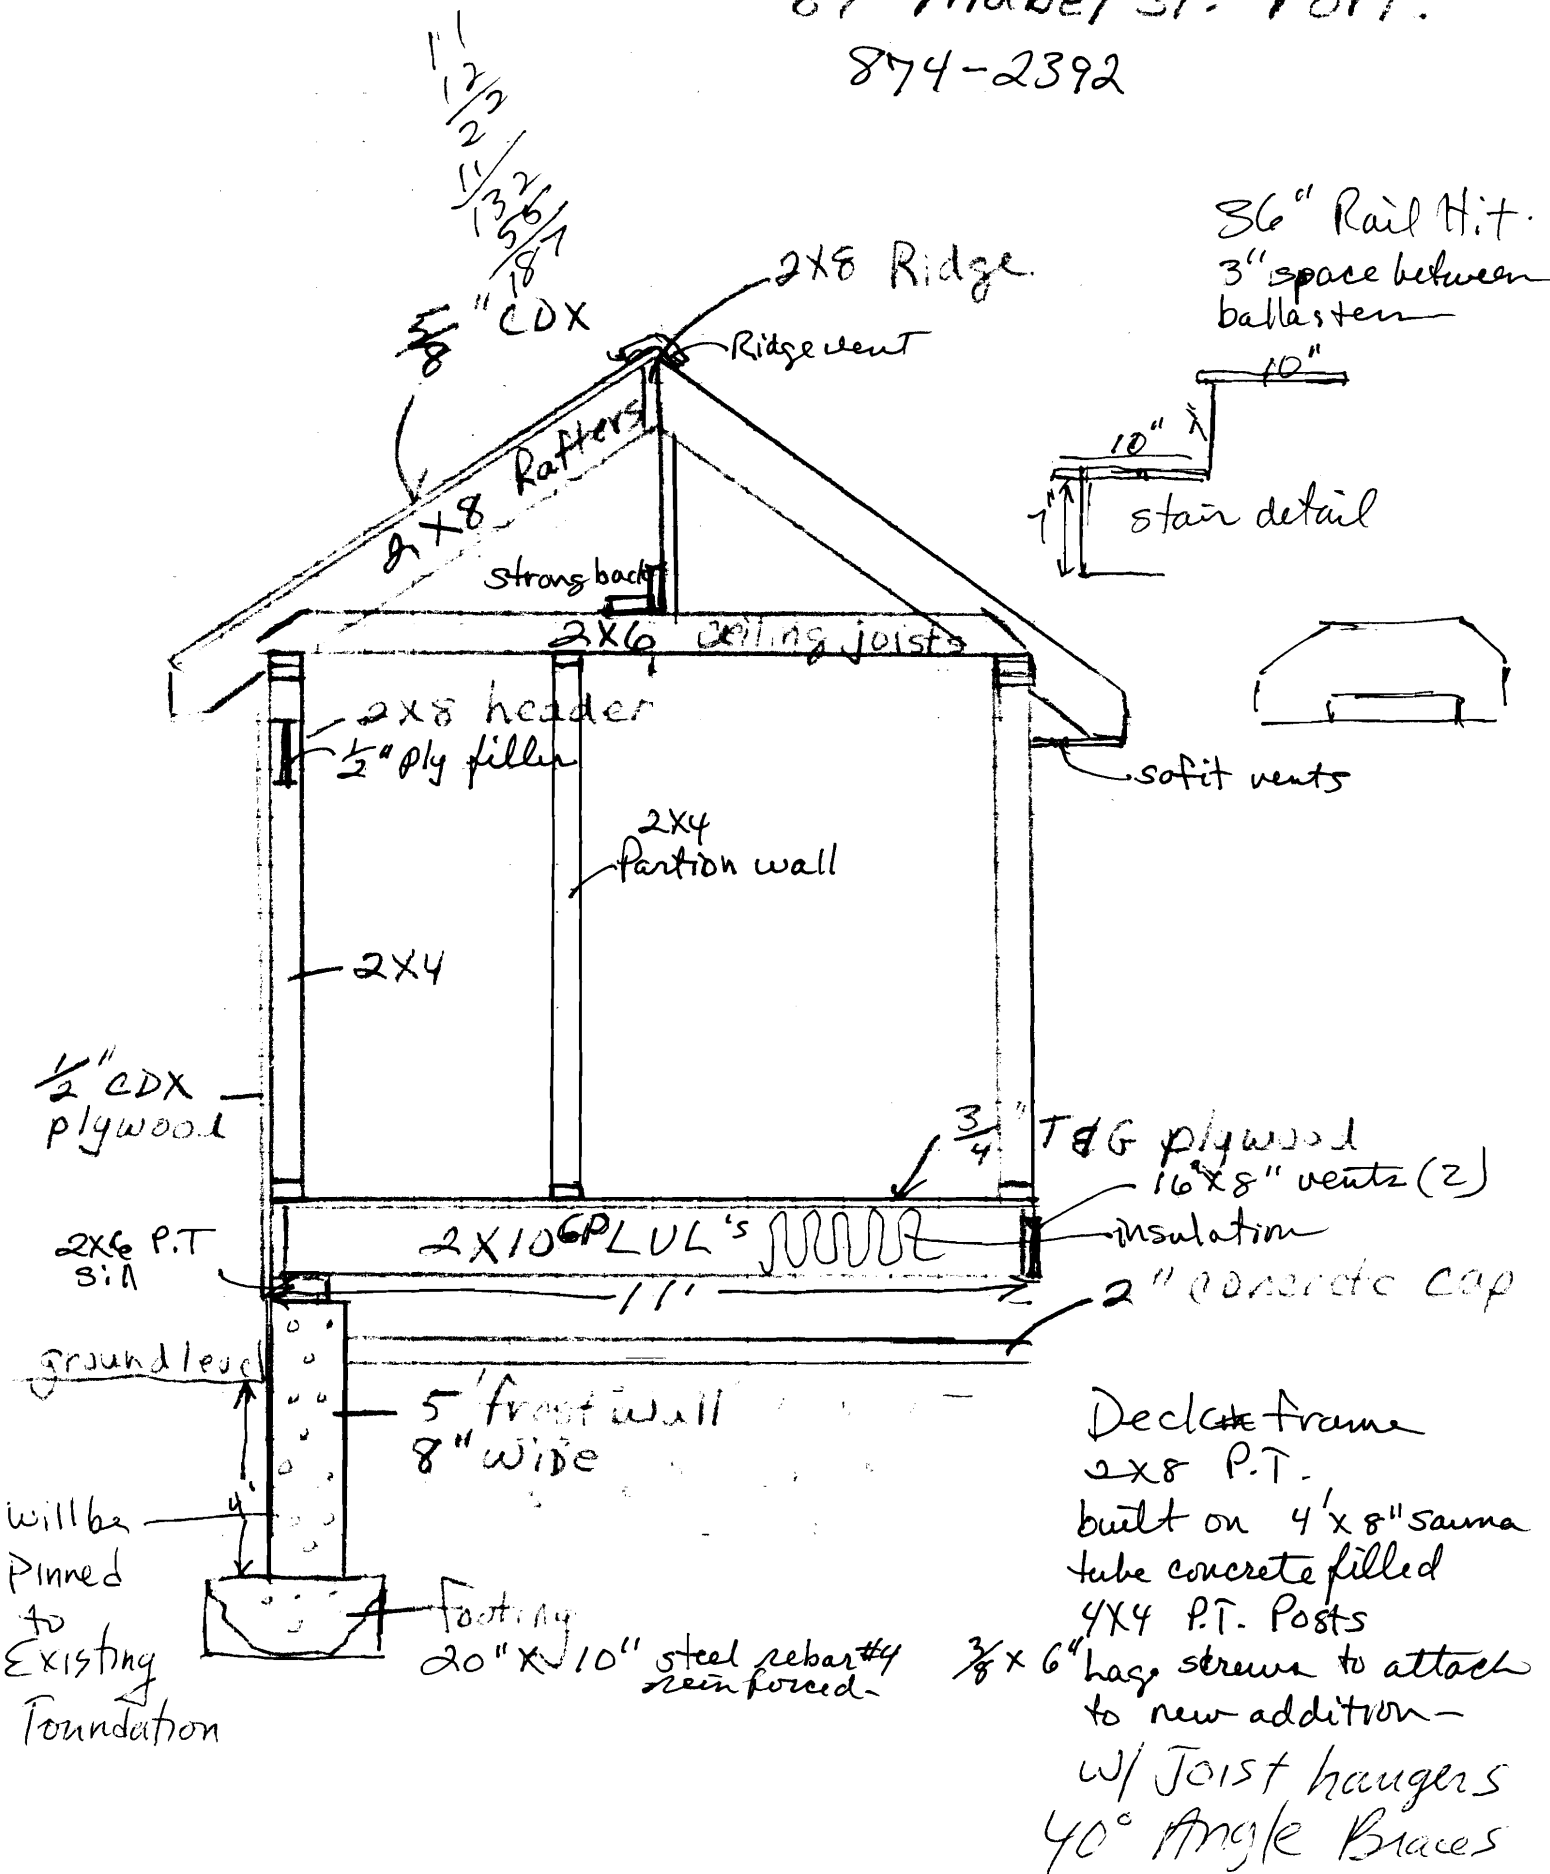 St. Port.
874-2392
1'
12
/2
2
11
132
55
187
36" Rail Hit.
3" space between
ballasten
2X8 Ridge
5/8" CDX
Ridge vent
10"
2X8 Rafters
10"
7"
stair detail
strong back
2X6 ceiling joists
2X8 header
1/2" ply filler
sofit vents
2X4
Partion wall
2X4
1/2" CDX
plywood
3/4" T&G plywood
16"X8" vents (2)
2X6 P.T
sill
2X10 LUL's
insulation
11'
2" concrete cap
ground level
5' frost wall
8" WIDE
4'
will be
pinned
to
Existing
Foundation
Footing
20" X 10" steel rebar #4
reinforced-
Deck frame
2X8 P.T.
built on 4'x8" sauna
tube concrete filled
4X4 P.T. Posts
3/8 x 6" Lag screws to attach
to new addition-
w/ Joist hangers
40° Angle Braces